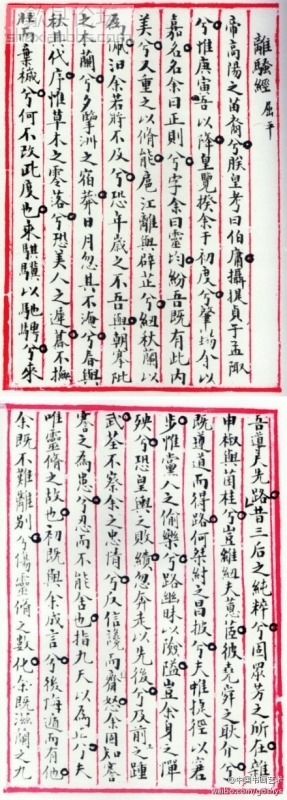 離騷經 屈平
帝高陽之苗裔兮朕皇考曰伯庸攝提貞于孟陬
兮惟庚寅吾以降皇覽揆余于初度兮肇錫余以
嘉名名余曰正則兮字余曰靈均紛吾既有此內
美兮又重之以脩能扈江離與辟芷兮紉秋蘭以
為佩汨余若將不及兮恐年歲之不吾與朝搴阰
之蘭兮夕擥洲之宿莽日月忽其不淹兮春與
秋其代序惟草木之零落兮恐美人之遲暮不撫
壯而棄穢兮何不改此度也乘騏驥以馳騁兮來
吾道夫先路昔三后之純粹兮固眾芳之所在雜
申椒與菌桂兮豈維紉夫蕙茝彼堯舜之耿介兮
既遵道而得路何桀紂之昌披兮夫唯捷徑以窘
步惟黨人之偷樂兮路幽昧以險隘豈余身之憚
殃兮恐皇輿之敗績忽奔走以先後兮及前之踵
武荃不察余之忠情兮反信讒而齌怒余固知謇
謇之為患兮忍而不能舍也指九天以為正兮夫
唯靈脩之故也初既與余成言兮後悔遁而有他
余既不難離別兮傷靈脩之數化余既滋蘭之九
@中国书画艺术